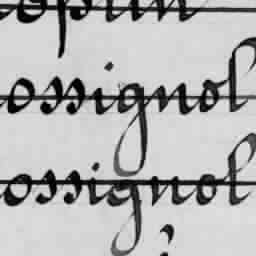 ossignol
ossignol